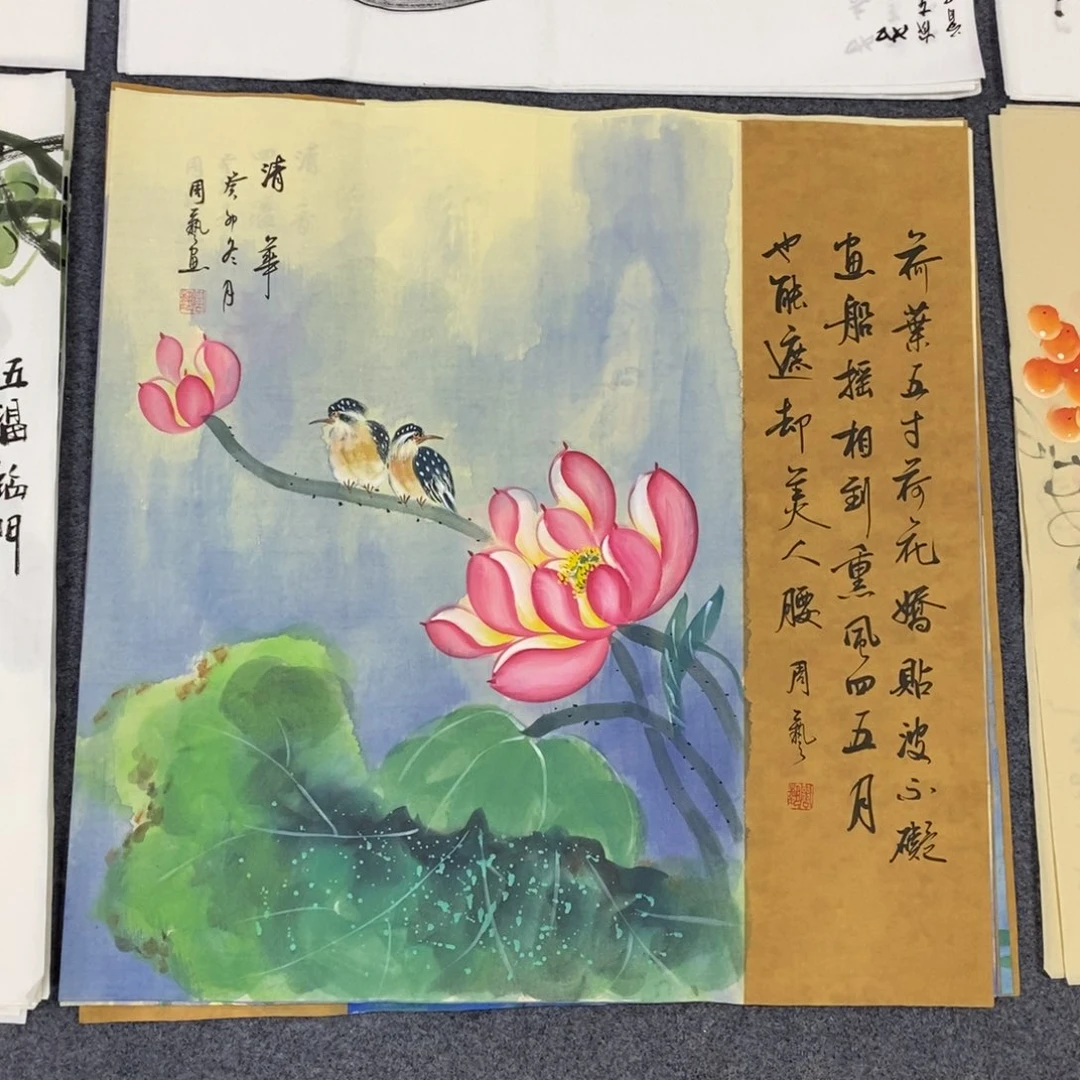 荷葉五寸荷花嬌貼波不礙
畫船摇相到熏風四五月
也能遮却美人腰
周藝
清華
癸卯冬月
周藝畫
五福臨門